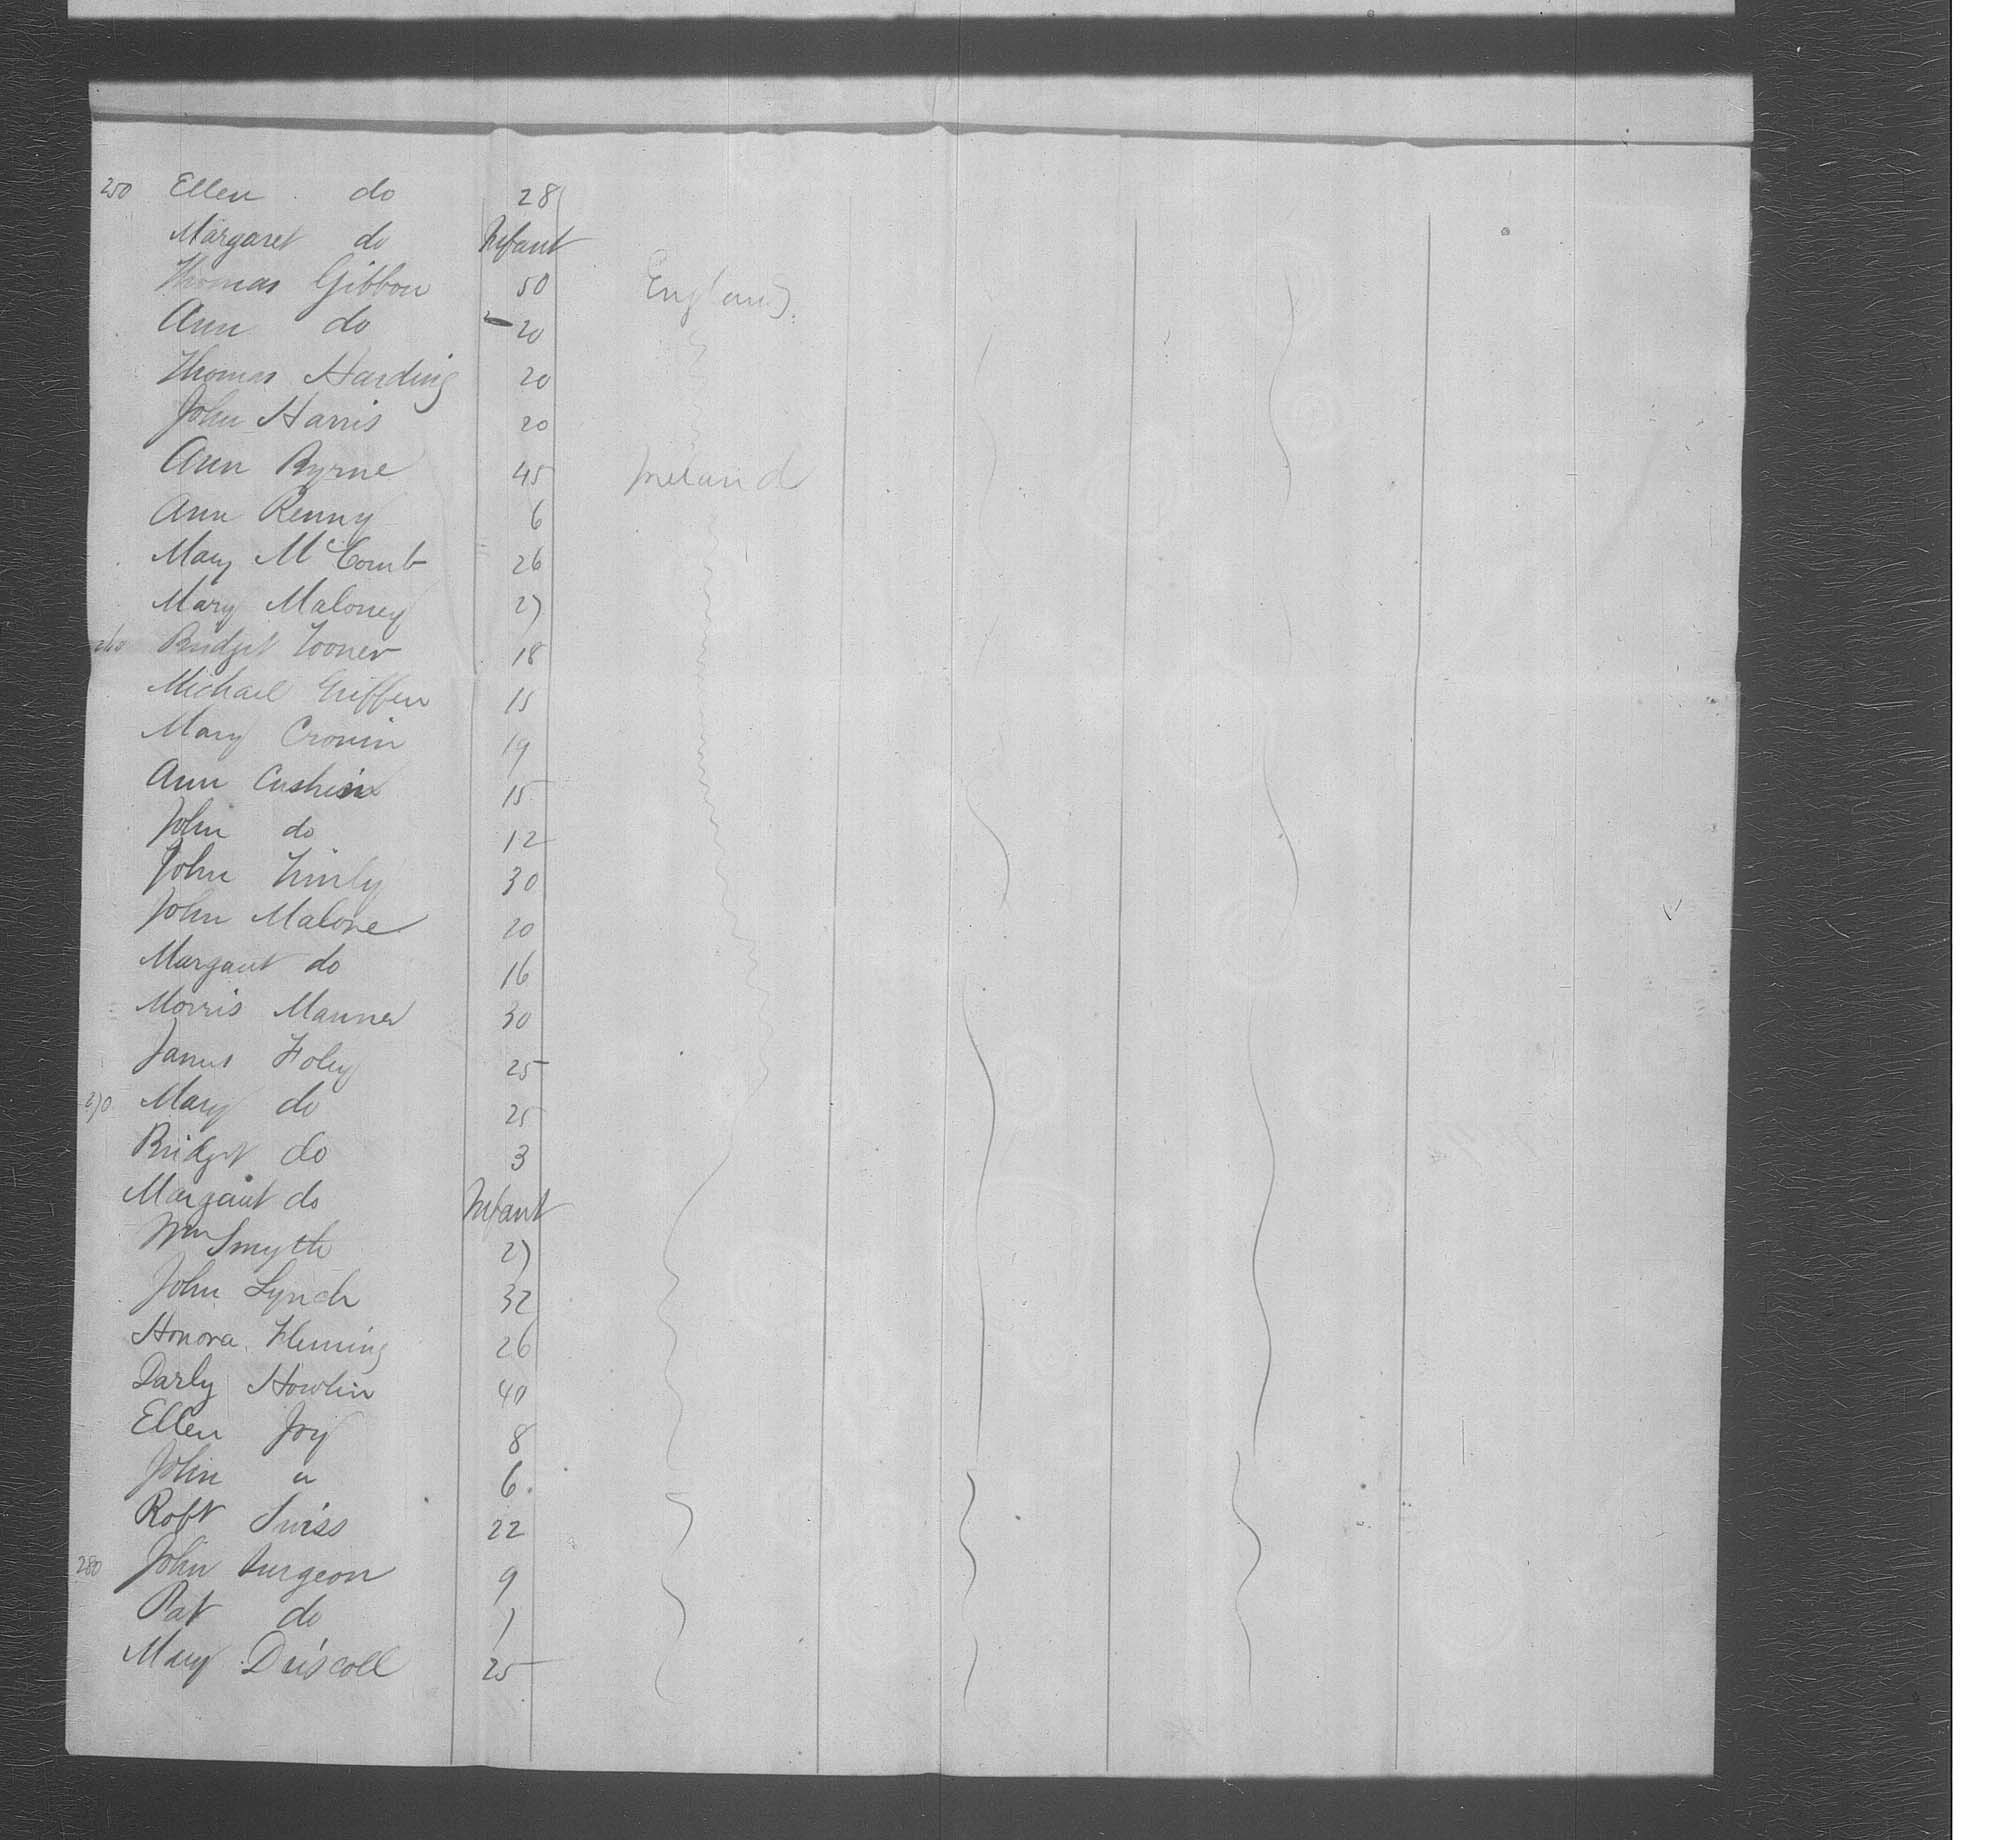 250 Ellen do 28
Margaret do Infant
Thomas Gibbon 50 England
Ann do 20
Thomas Harding 20
John Harris 20
Ann Byrne 45 Ireland
Ann Renny 6
Mary McComb 26
Mary Maloney 27
260 Bridget 18
Michael Griffen 15
Mary Cronin 19
Ann 15
John do 12
John 30
John Malone 20
Margaret do 16
Morris 30
James Foley 25
270 Mary do 25
Bridget do 3
Margaret do Infant
Wm Smyth 27
John Lynch 32
Honora Fleming 26
Darly Howlin 40
Ellen Joy 8
John " 6
Robt Swiss 22
280 John Surgeon 9
Pat do 7
Mary Driscoll 25